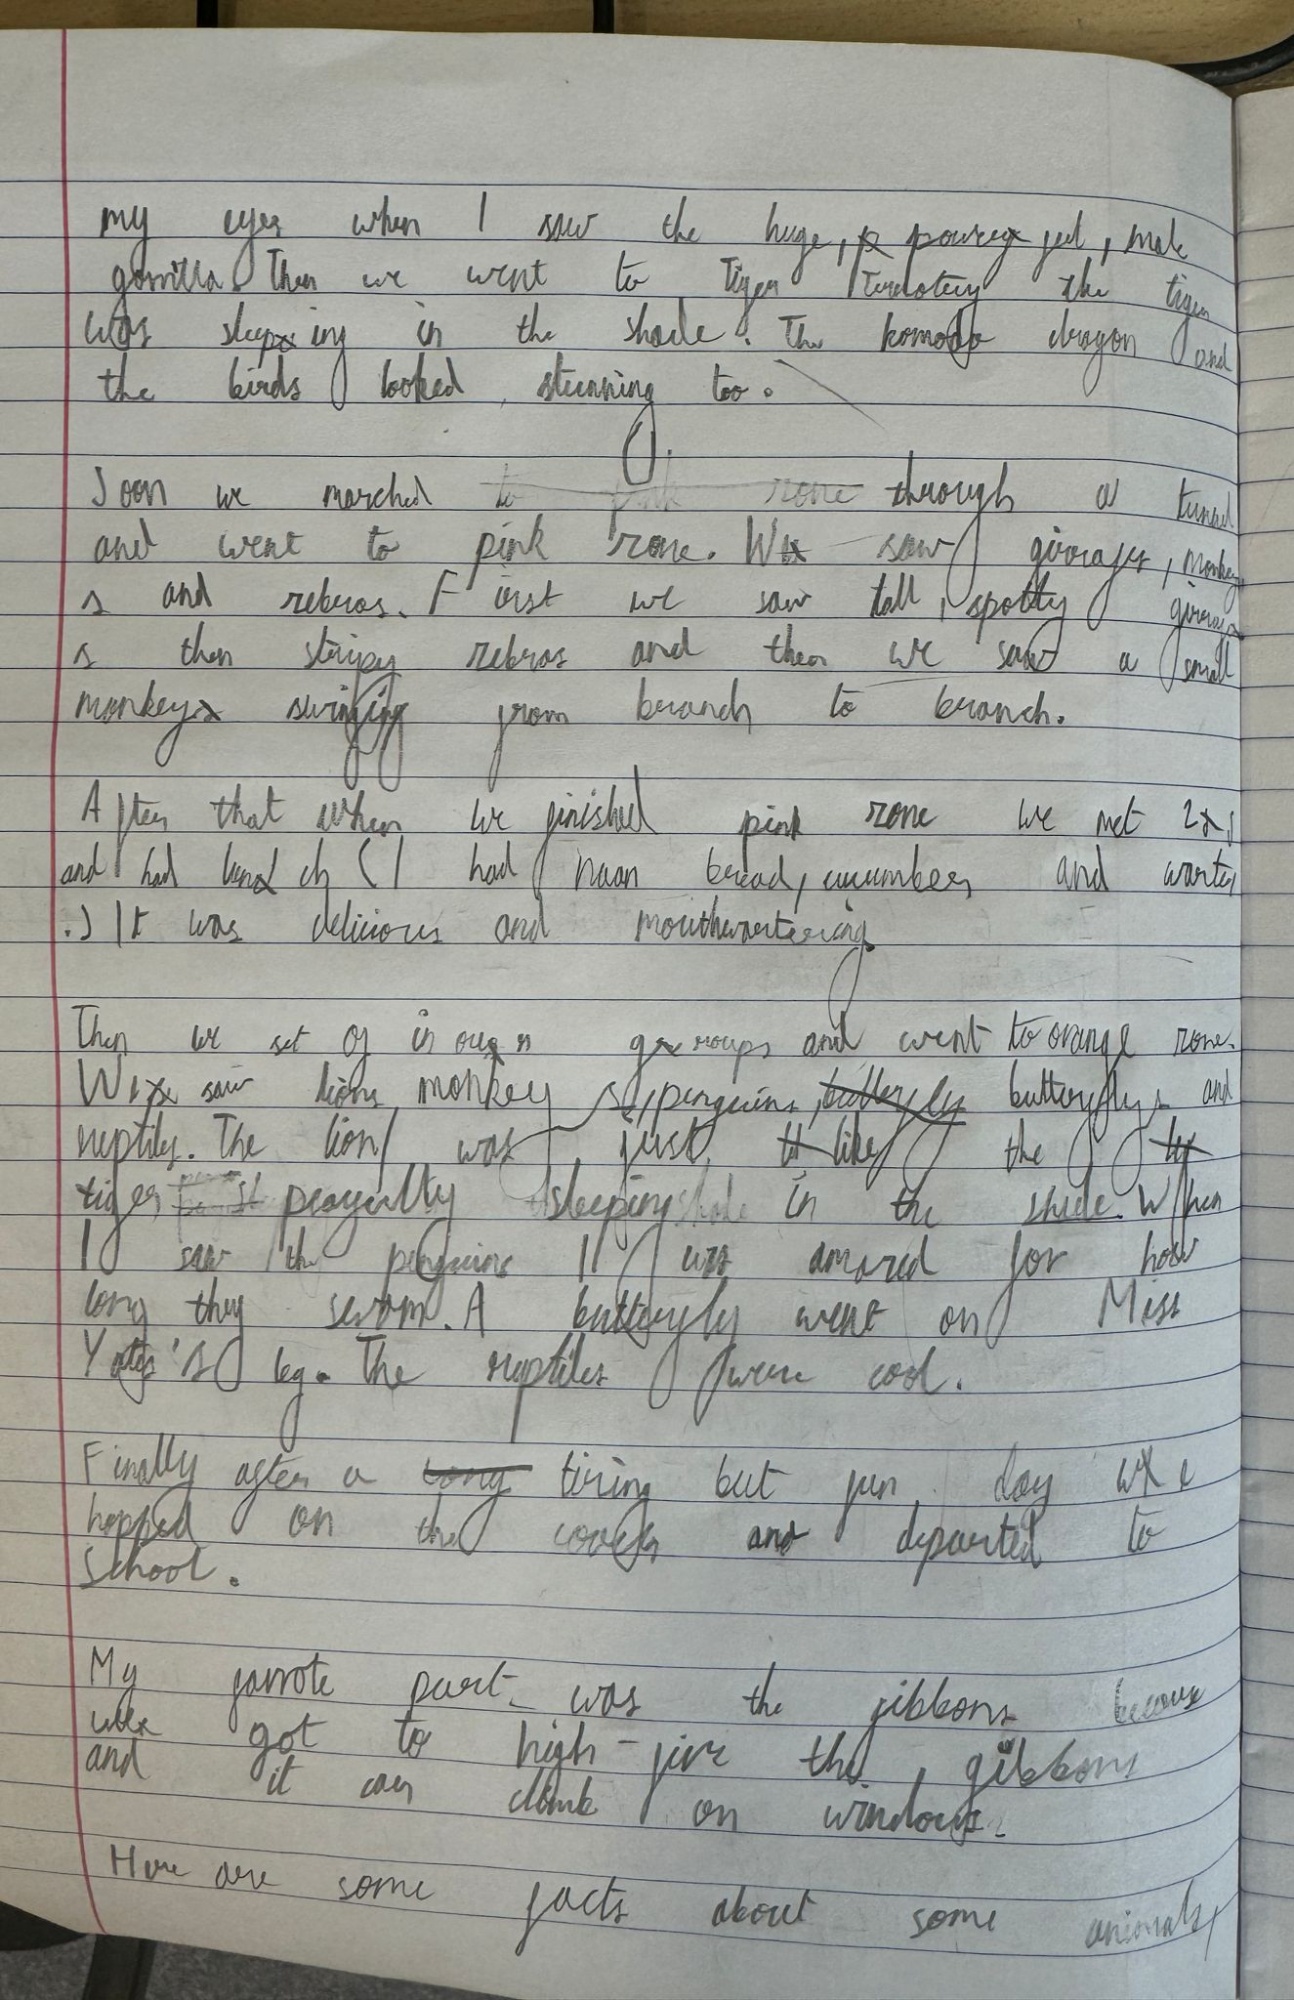 my eyes when I saw the huge, powerful, male
gorrilla. Then we went to Tiger Terrotery the tiger
was sleeping in the shade. The komodo dragon and
the birds looked stunning too.
Soon we marched to pink zone through a tunnel
and went to pink zone. We saw giraffes, monkey
s and zebras. First we saw tall, spotty giraffe
s then stripy zebras and then we saw a small
monkeys swinging from branch to branch.
After that when we finished pink zone we met 2
and had lunch (I had naan bread, cucumber and warter
.) It was delicious and mouthwartering.
Then we set of in our groups and went to orange zone.
We saw lions, monkey s, penguins, butterfly butterflys and
reptiles. The lion was just like the
tiger peacefully sleeping in the shade. When
I saw the penguins I was amazed for how
long they swam. A butterfly went on Miss
Yates's leg. The reptiles were cool.
Finally after a long tiring but fun day we
hopped on the coach and departed to
school.
My favrote part was the gibbons because
we got to high-five the gibbons
and it can climb on windows.
Here are some facts about some animals